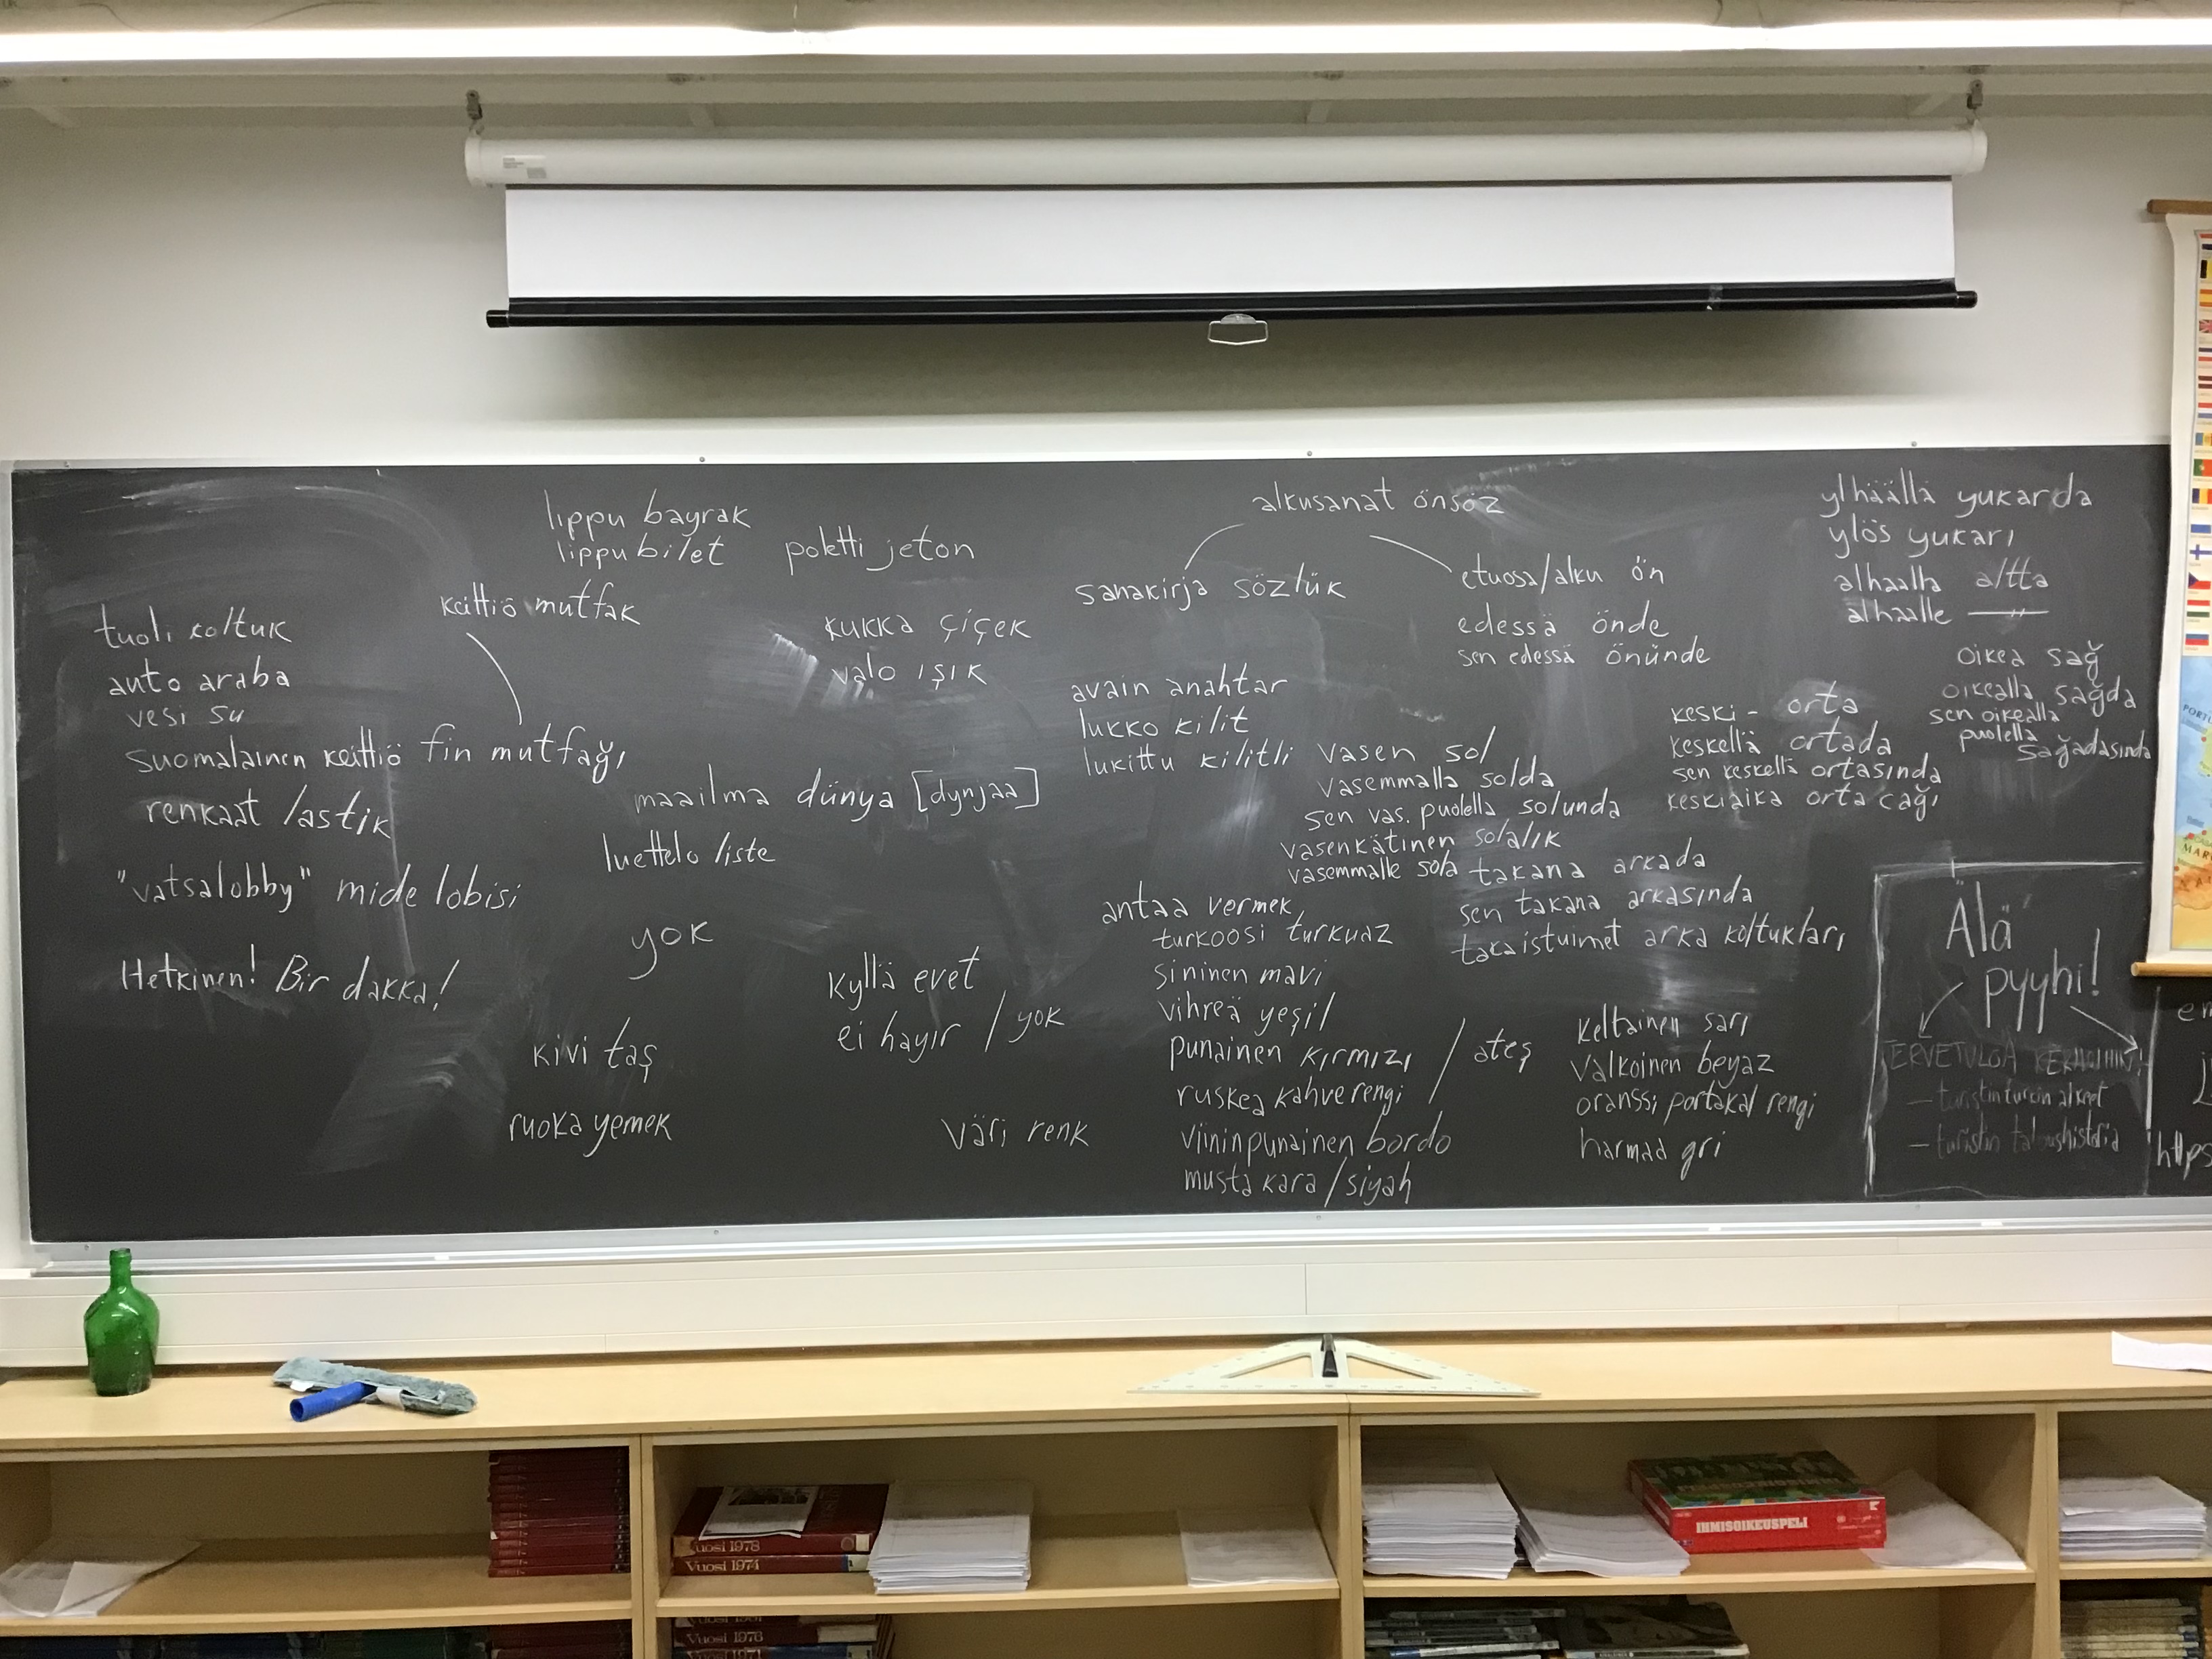 lippu bayrak
lippu bilet
poletti jeton
keittiö mutfak
tuoli koltuk
auto araba
vesi su
suomalainen keittiö fin mutfağı
renkaat lastik
"vatsalobby" mide lobisi
Hetkinen! Bir dakka!
kukka çiçek
valo ışık
maailma dünya [dynjaa]
luettelo liste
yok
kyllä evet
ei hayır / yok
kivi taş
ruoka yemek
väri renk
alkusanat önsöz
sanakirja sözlük
etuosa/alku ön
edessä önde
sen edessä önünde
avain anahtar
lukko kilit
lukittu kilitli
vasen sol
vasemmalla solda
sen vas. puolella solunda
vasenkätinen solalık
vasemmalle sola
takana arkada
sen takana arkasında
takaistuimet arka koltukları
antaa vermek
turkoosi turkuaz
sininen mavi
vihreä yeşil
punainen kırmızı / ateş
ruskea kahverengi
viininpunainen bordo
musta kara / siyah
keltainen sarı
valkoinen beyaz
oranssi portakal rengi
harmaa gri
ylhäällä yukarda
ylös yukarı
alhaalla altta
alhaalle
oikea sağ
oikealla sağda
sen oikealla
puolella
sağadasında
keski- orta
keskellä ortada
sen keskellä ortasında
keskiaika orta cağı
Älä
pyyhi!
TERVETULOA KERHOIHIN!
- turistinturkin alkeet
- turistin taloushistoria
https
IHMISOIKEUSPELI
Vuosi 1978
Vuosi 1974
Vuosi 1976